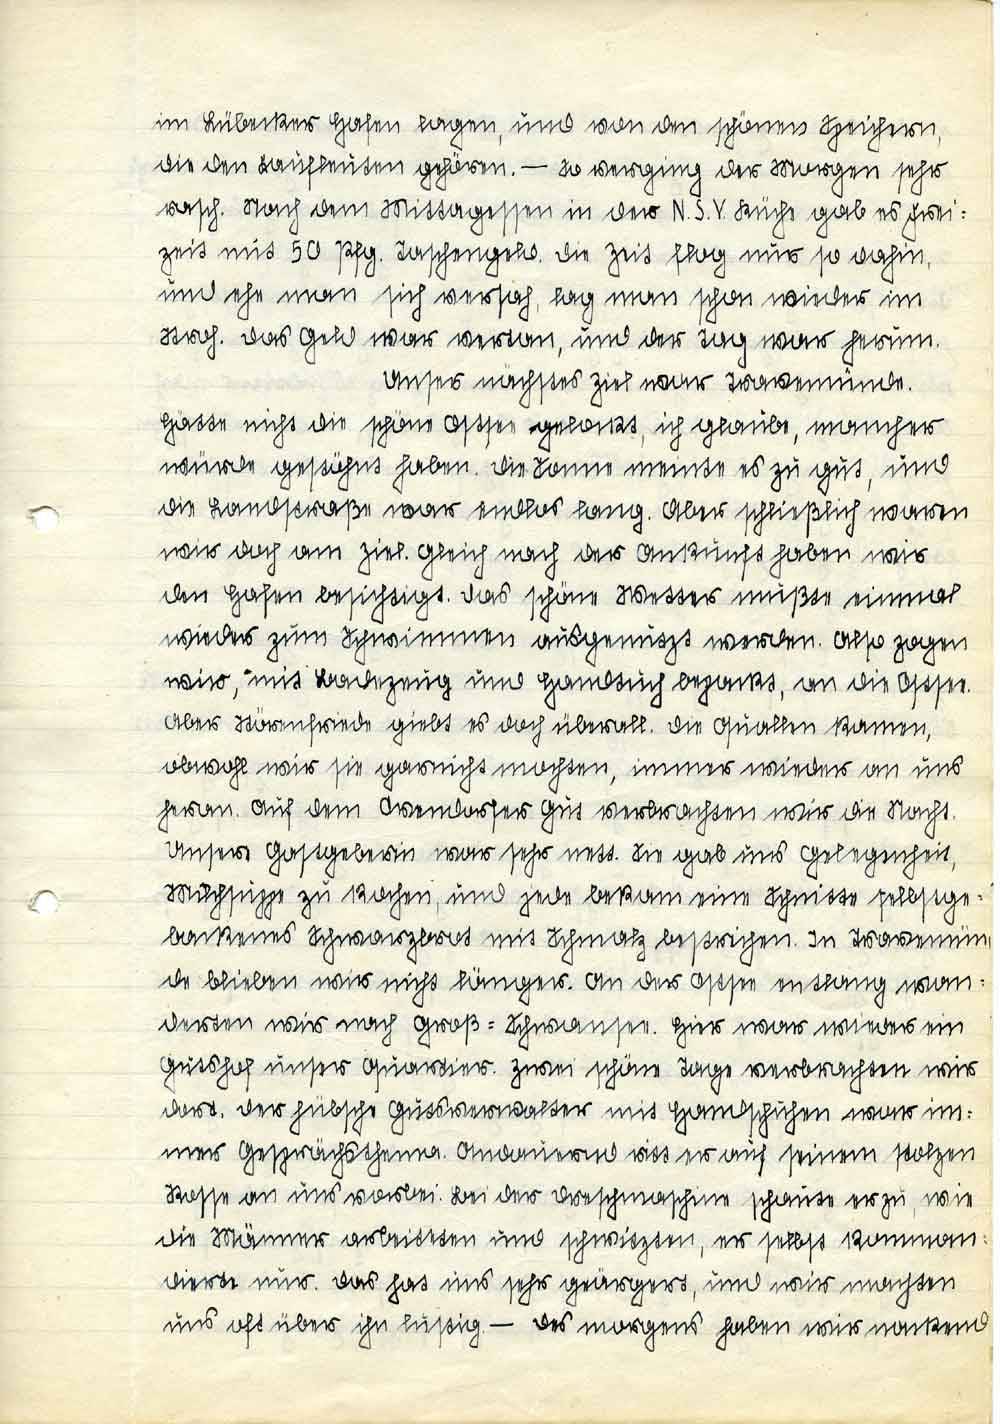 im Lübecker Hafen lagen, und von den schönen Speichern,
die den Kaufleuten gehören. — So verging der Morgen sehr
rasch. Nach dem Mittagessen in der N.S.V. Küche gab es Frei=
zeit mit 50 Pfg. Taschengeld. Die Zeit flog nur so dahin,
und ehe man sich versah, lag man schon wieder im
Stroh. Das Geld war vertan, und der Tag war herum.
Unser nächstes Ziel war Travemünde.
Hätte nicht die schöne Ostsee gelockt, ich glaube, mancher
würde gestöhnt haben. Die Sonne meinte es zu gut, und
die Landstraße war endlos lang. Aber schließlich waren
wir doch am Ziel. Gleich nach der Ankunft haben wir
den Hafen besichtigt. Das schöne Wetter mußte einmal
wieder zum Schwimmen ausgenutzt werden. Also zogen
wir, mit Badezeug und Handtuch bepackt, an die Ostsee.
Aber Störenfriede giebt es doch überall. Die Quallen kamen,
obwohl wir sie garnicht mochten, immer wieder an uns
heran. Auf dem Ovendorfer Gut verbrachten wir die Nacht.
Unsere Gastgeberin war sehr nett. Sie gab uns Gelegenheit,
Milchsuppe zu kochen, und jede bekam eine Schnitte selbstge=
backenes Schwarzbrot mit Schmalz bestrichen. In Travemün
de blieben wir nicht länger. An der Ostsee entlang wan=
derten wir nach Groß=Schwansee. Hier war wieder ein
Gutshof unser Quartier. Zwei schöne Tage verbrachten wir
dort. Der hübsche Gutsverwalter mit Handschuhen war im=
mer Gesprächsthema. Andauernd ritt er auf seinem stolzen
Rosse an uns vorbei. Bei der Dreschmaschine schaute er zu, wie
die Männer arbeiteten und schwitzten, er selbst komman=
dierte nur. Das hat uns sehr geärgert, und wir machten
uns oft über ihn lustig. — Des morgens haben wir nackend